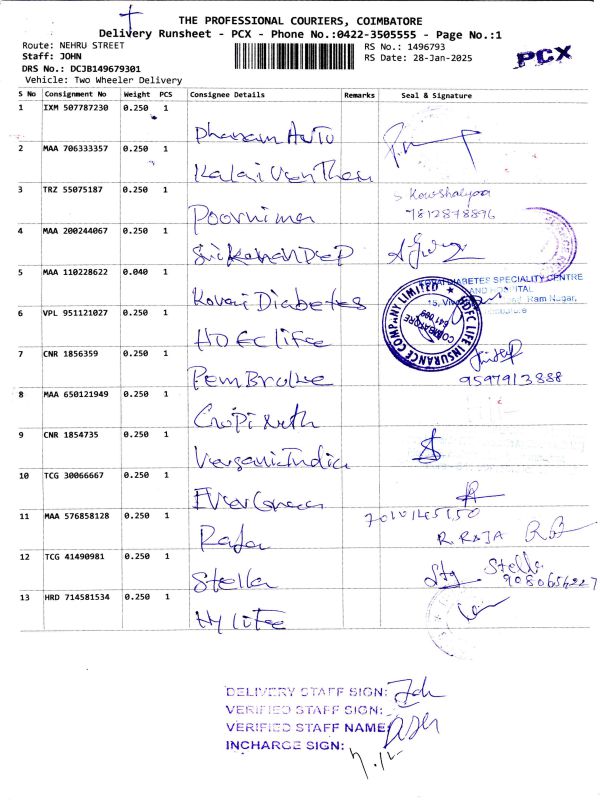 THE PROFESSIONAL COURIERS, COIMBATORE
Delivery Runsheet - PCX - Phone No.:0422-3505555 - Page No.:1
Route: NEHRU STREET RS No.: 1496793
Staff: JOHN RS Date: 28-Jan-2025
PCX
DRS No.: DCJB149679301
Vehicle: Two Wheeler Delivery
S No Consignment No Weight PCS Consignee Details Remarks Seal & Signature
1 IXM 507787230 0.250 1
2 MAA 706333357 0.250 1
Kalai Vanthan
3 TRZ 55075187 0.250 1
S Kowshalyaa
7812878896
Poornima
4 MAA 200244067 0.250 1
5 MAA 110228622 0.040 1
KOVAI DIABETES SPECIALITY CENTRE
AND HOSPITAL
Ram Nagar,
Kovai Diabetes
6 VPL 951121027 0.250 1
HDFC LIFE INSURANCE COMPANY LIMITED
COIMBATORE
641 009
HDFC life
7 CNR 1856359 0.250 1
Pembroke
9597913888
8 MAA 650121949 0.250 1
9 CNR 1854735 0.250 1
10 TCG 30066667 0.250 1
Ever Green
11 MAA 576858128 0.250 1
R. RAJA
Raja
12 TCG 41490981 0.250 1
Stella
9080656227
Stella
13 HRD 714581534 0.250 1
Hy life
DELIVERY STAFF SIGN:
VERIFIED STAFF SIGN:
VERIFIED STAFF NAME:
INCHARGE SIGN: